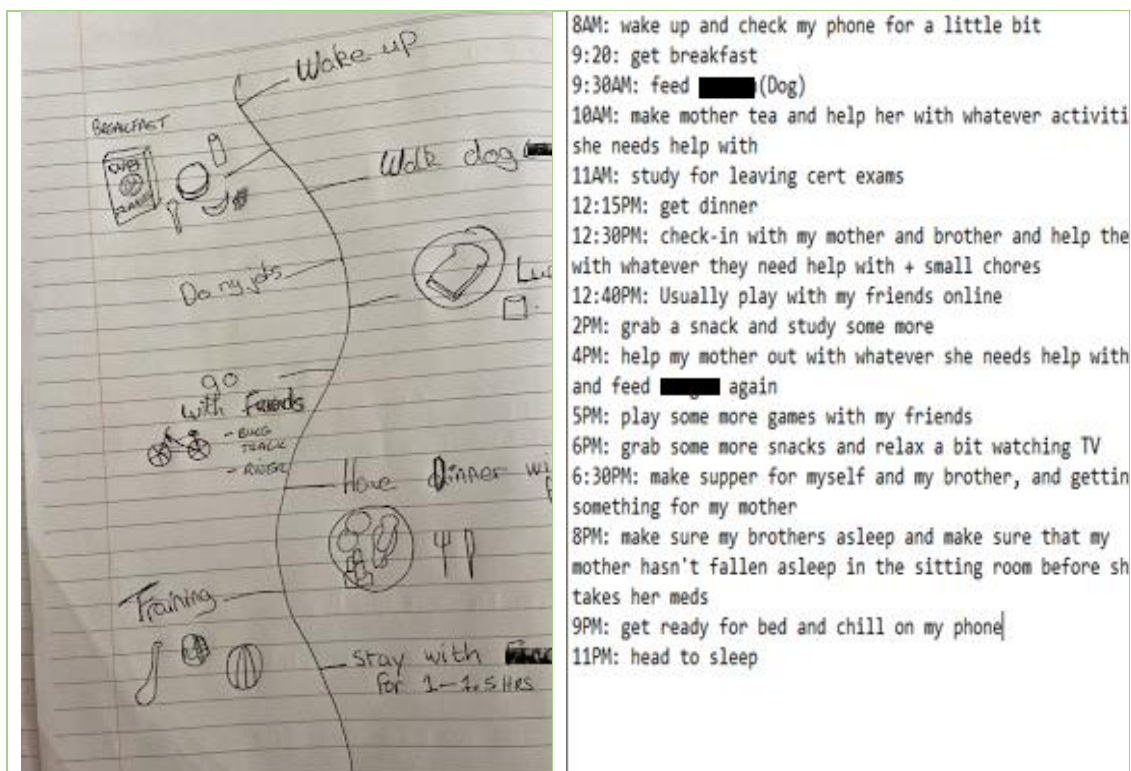 Wake up
BREAKFAST
Walk dog
Do my jobs
go
with Friends
- BIKE
TRACK
- RIVER
Have Dinner wi
Training
stay with
for 1-1.5 HRS
8AM: wake up and check my phone for a little bit
9:20: get breakfast
9:30AM: feed (Dog)
10AM: make mother tea and help her with whatever activiti
she needs help with
11AM: study for leaving cert exams
12:15PM: get dinner
12:30PM: check-in with my mother and brother and help the
with whatever they need help with + small chores
12:40PM: Usually play with my friends online
2PM: grab a snack and study some more
4PM: help my mother out with whatever she needs help with
and feed again
5PM: play some more games with my friends
6PM: grab some more snacks and relax a bit watching TV
6:30PM: make supper for myself and my brother, and gettin
something for my mother
8PM: make sure my brothers asleep and make sure that my
mother hasn't fallen asleep in the sitting room before sh
takes her meds
9PM: get ready for bed and chill on my phone
11PM: head to sleep